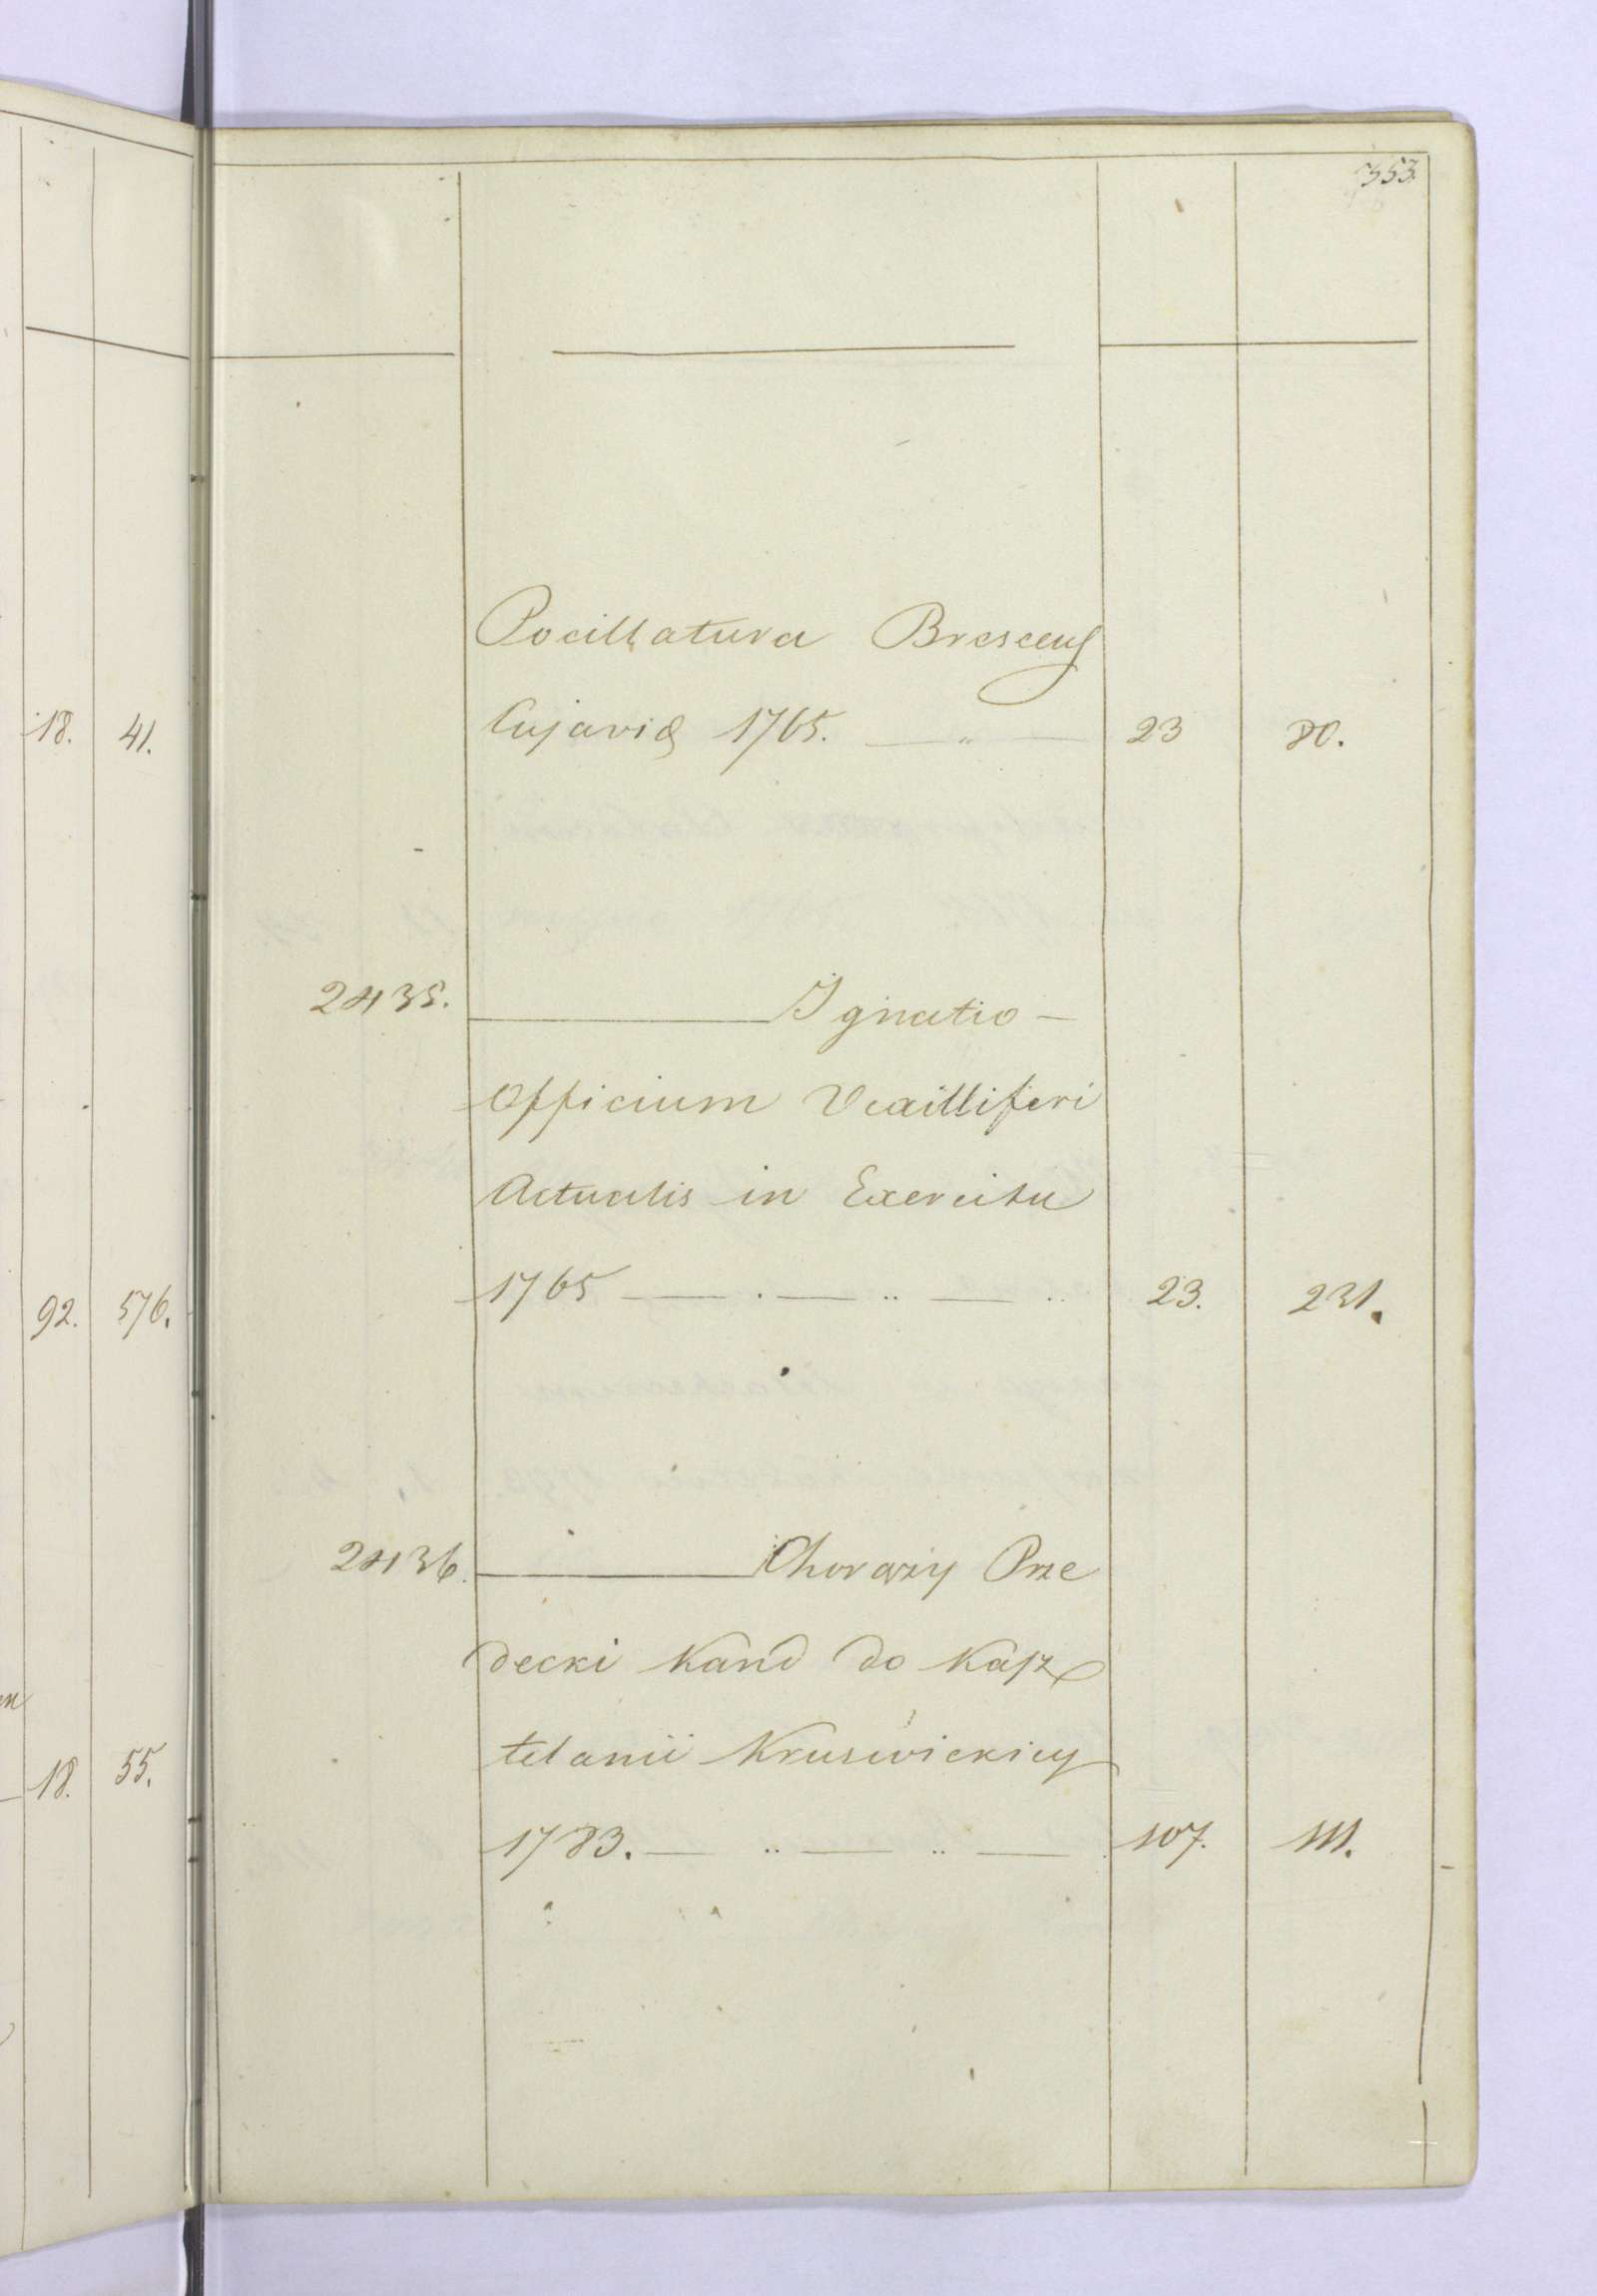 353.
18. 41.
92. 576.
18. 55.
Pocillatura Brescens
Cujaviæ 1765. — „ — 23 80.
2435. ——— Ignatio —
Officium Vexilliferi
Actualis in Exercitu
1765 — . — .. — .. 23. 231.
2436. ——— Chorąży Prze
decki Kand do Kasz
telanii Kruświckiey
1783. — .. — .. — 107. 111.